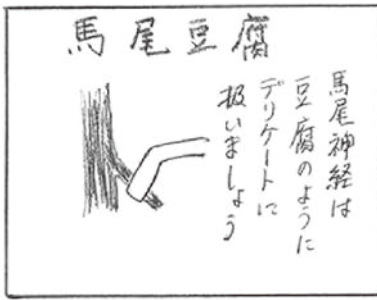 馬尾豆腐
馬尾神経は
豆腐のように
デリケートに
扱いましょう